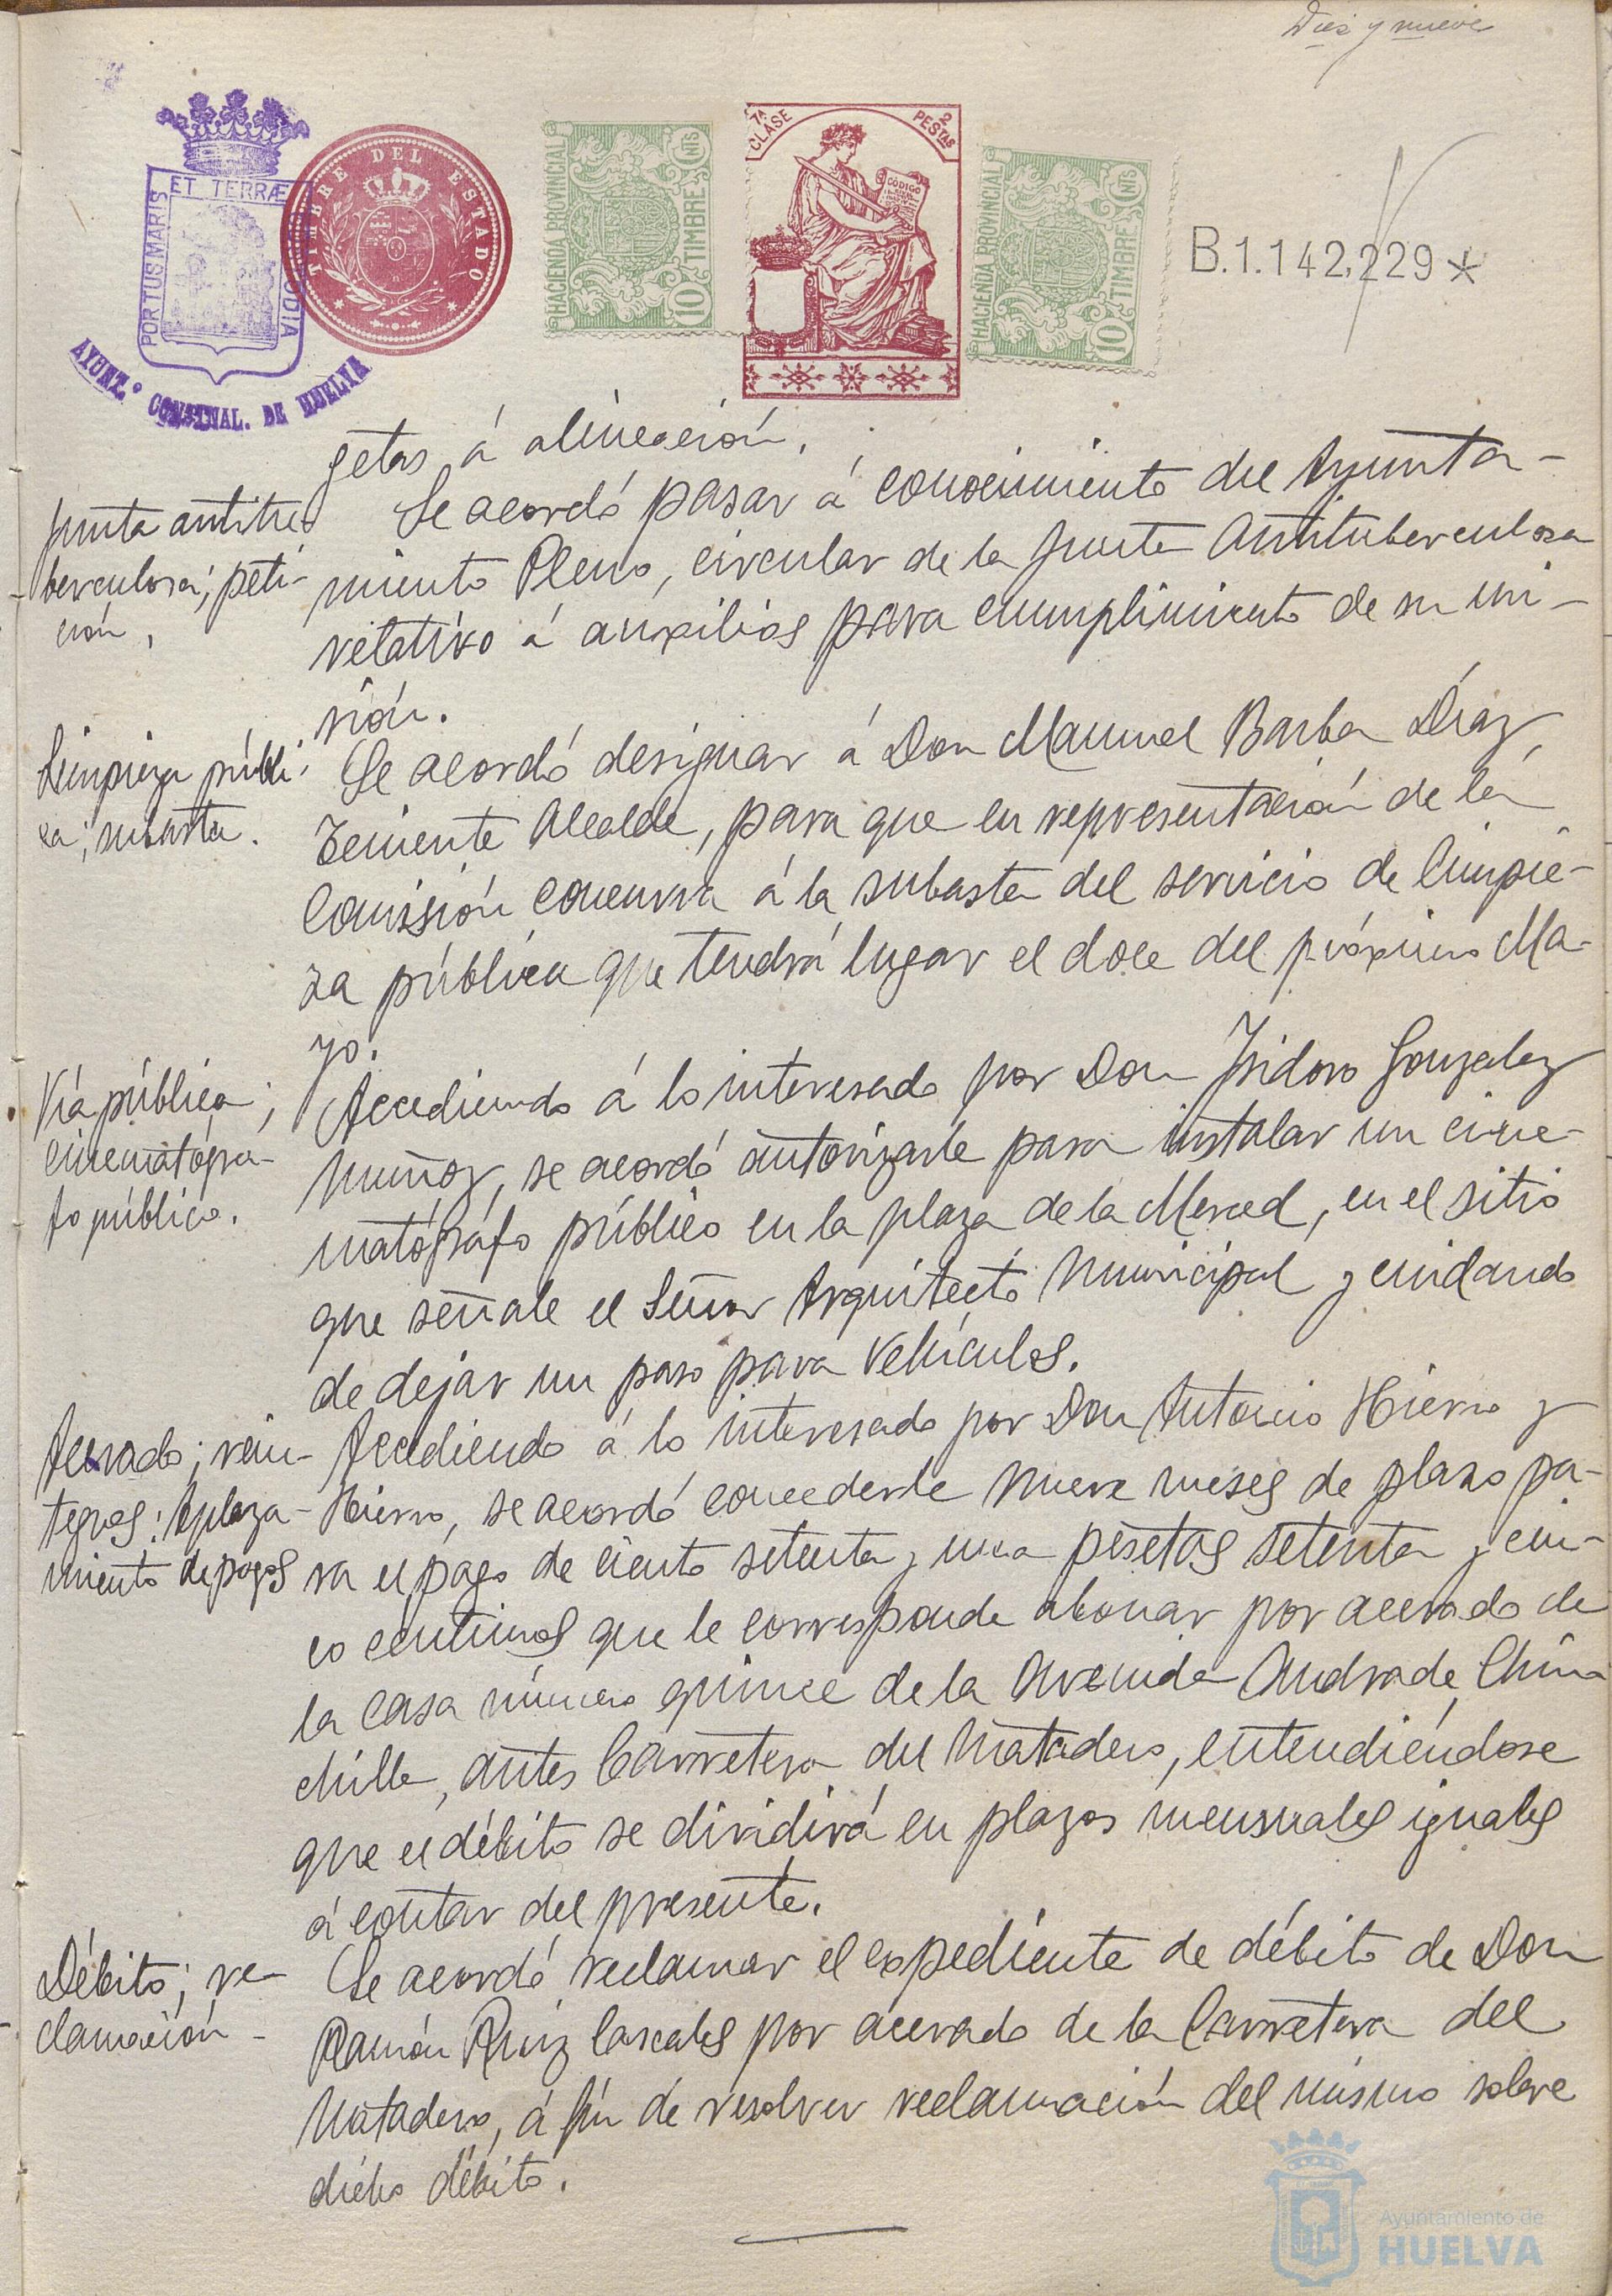 Diez y nueve
ET TERRÆ
PORTUS MARIS
ODIA
AYUNT.º CONSTNAL. DE HUELVA
TIMBRE DEL ESTADO
HACIENDA PROVINCIAL
10 CNTS
TIMBRE
7ª CLASE
2 PESTAS
CÓDIGO
HACIENDA PROVINCIAL
10 CNTS
TIMBRE
B.1.142,229*
getas á alineación.
Junta antitu-
berculosa; peti-
ción.
Se acordó pasar á conocimiento del Ayunta-
miento Pleno, circular de la Junta Antituberculosa
relativo á auxilios para cumplimiento de su mi-
sión.
Limpieza públi-
ca; subasta.
Se acordó designar á Don Manuel Barba Díaz,
Teniente Alcalde, para que en representación de la
Comisión concurra á la subasta del servicio de limpie-
za pública que tendrá lugar el doce del próximo Ma-
yo.
Vía pública;
cinematógra-
fo público.
Accediendo á lo interesado por Don Isidoro Gonzalez
Muñoz, se acordó autorizarle para instalar un cine-
matógrafo público en la plaza de la Merced, en el sitio
que señale el Señor Arquitecto Municipal y cuidando
de dejar un paso para vehículos.
Acerado; rein-
tegros: Aplaza-
miento de pagos
Accediendo á lo interesado por Don Antonio Hierro y
Hierro, se acordó concederle nueve meses de plazo pa-
ra el pago de ciento setenta y una pesetas setenta y cin-
co centimos que le corresponde abonar por acerado de
la casa número quince de la Avenida Andrade Chin-
chilla, antes Carretera del Matadero, entendiéndose
que el débito se dividirá en plazos mensuales iguales
á contar del presente.
Débito; re-
clamación-
Se acordó reclamar el expediente de débito de Don
Ramón Ruiz Cascales por acerado de la Carretera del
Matadero, á fin de resolver reclamación del mismo sobre
dicho débito.
Ayuntamiento de
HUELVA